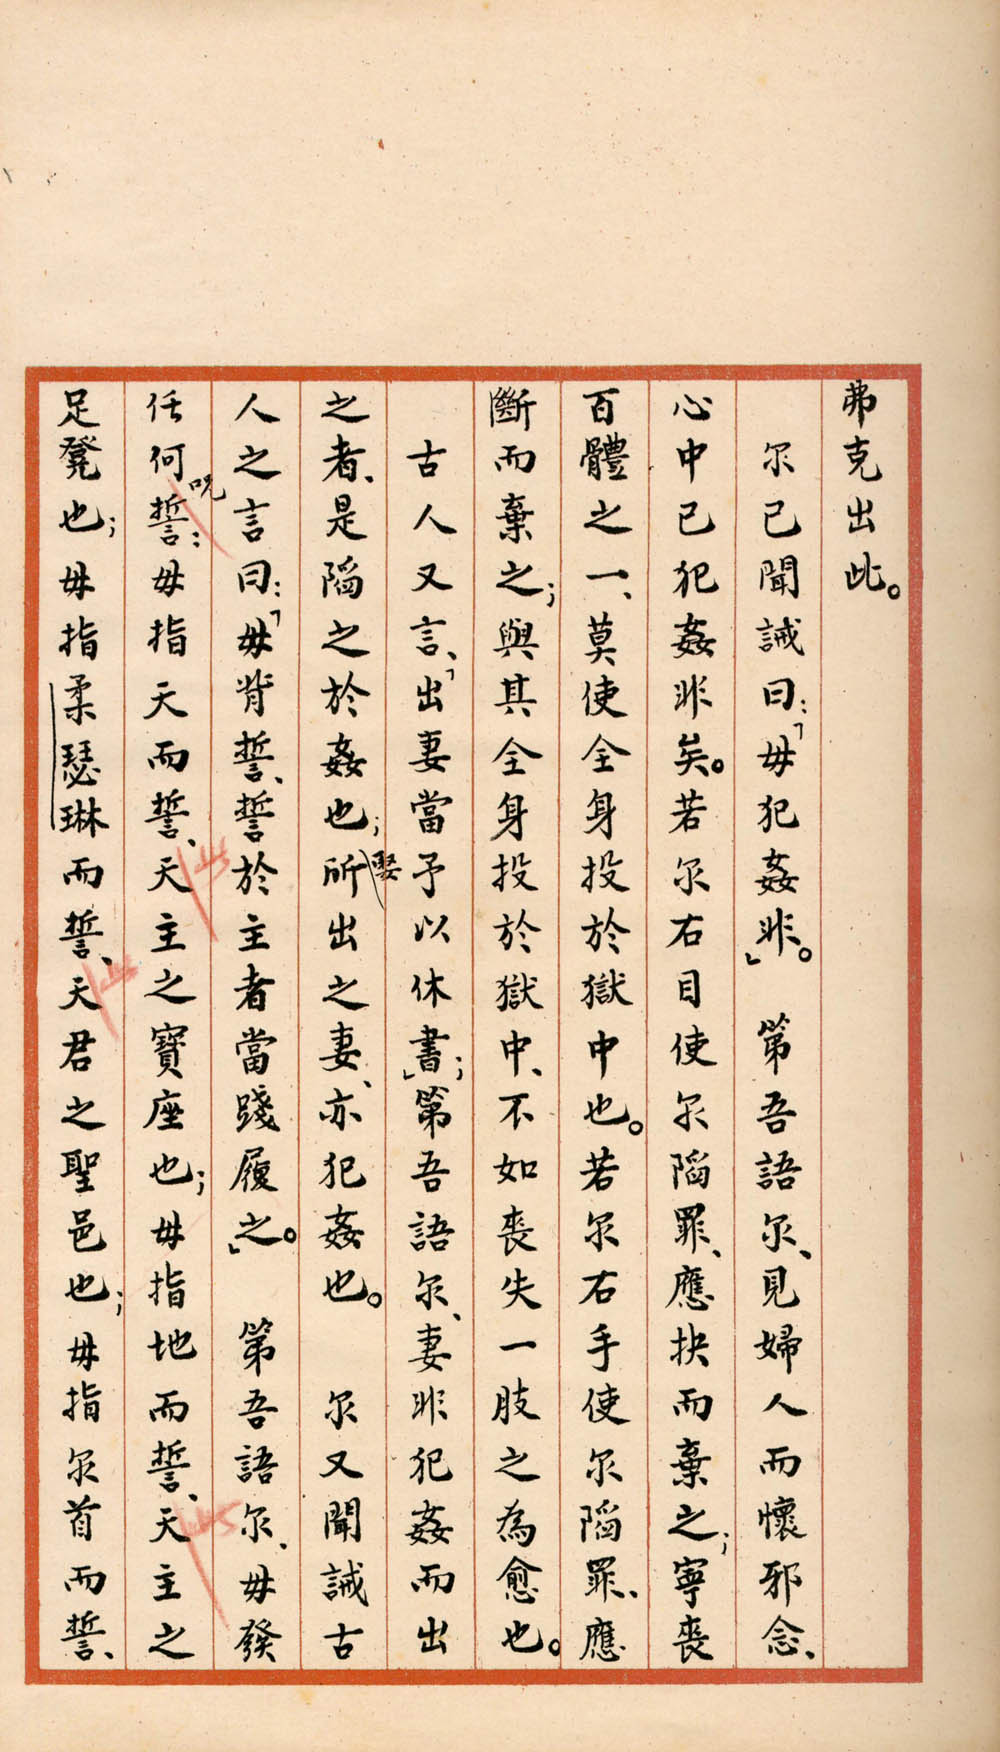 弗克出此。
尔已聞誡曰：「毋犯姦非。」　第吾語尔、見婦人而懷邪念、
心中已犯姦非矣。若尔右目使尔陷罪、應抉而棄之；寧喪
百體之一、莫使全身投於獄中也。若尔右手使尔陷罪、應
斷而棄之；與其全身投於獄中、不如喪失一肢之為愈也。
古人又言、「出妻當予以休書」；第吾語尔、妻非犯姦而出
之者、是陷之於姦也；娶所出之妻、亦犯姦也。　尔又聞誡古
人之言曰：「毋背誓、誓於主者當踐履之。」　第吾語尔、毋發
任何呪誓：毋指天而誓、天主之寶座也；毋指地而誓、天主之
足凳也；毋指柔瑟琳而誓、天君之聖邑也；毋指尔首而誓、
此
此
此